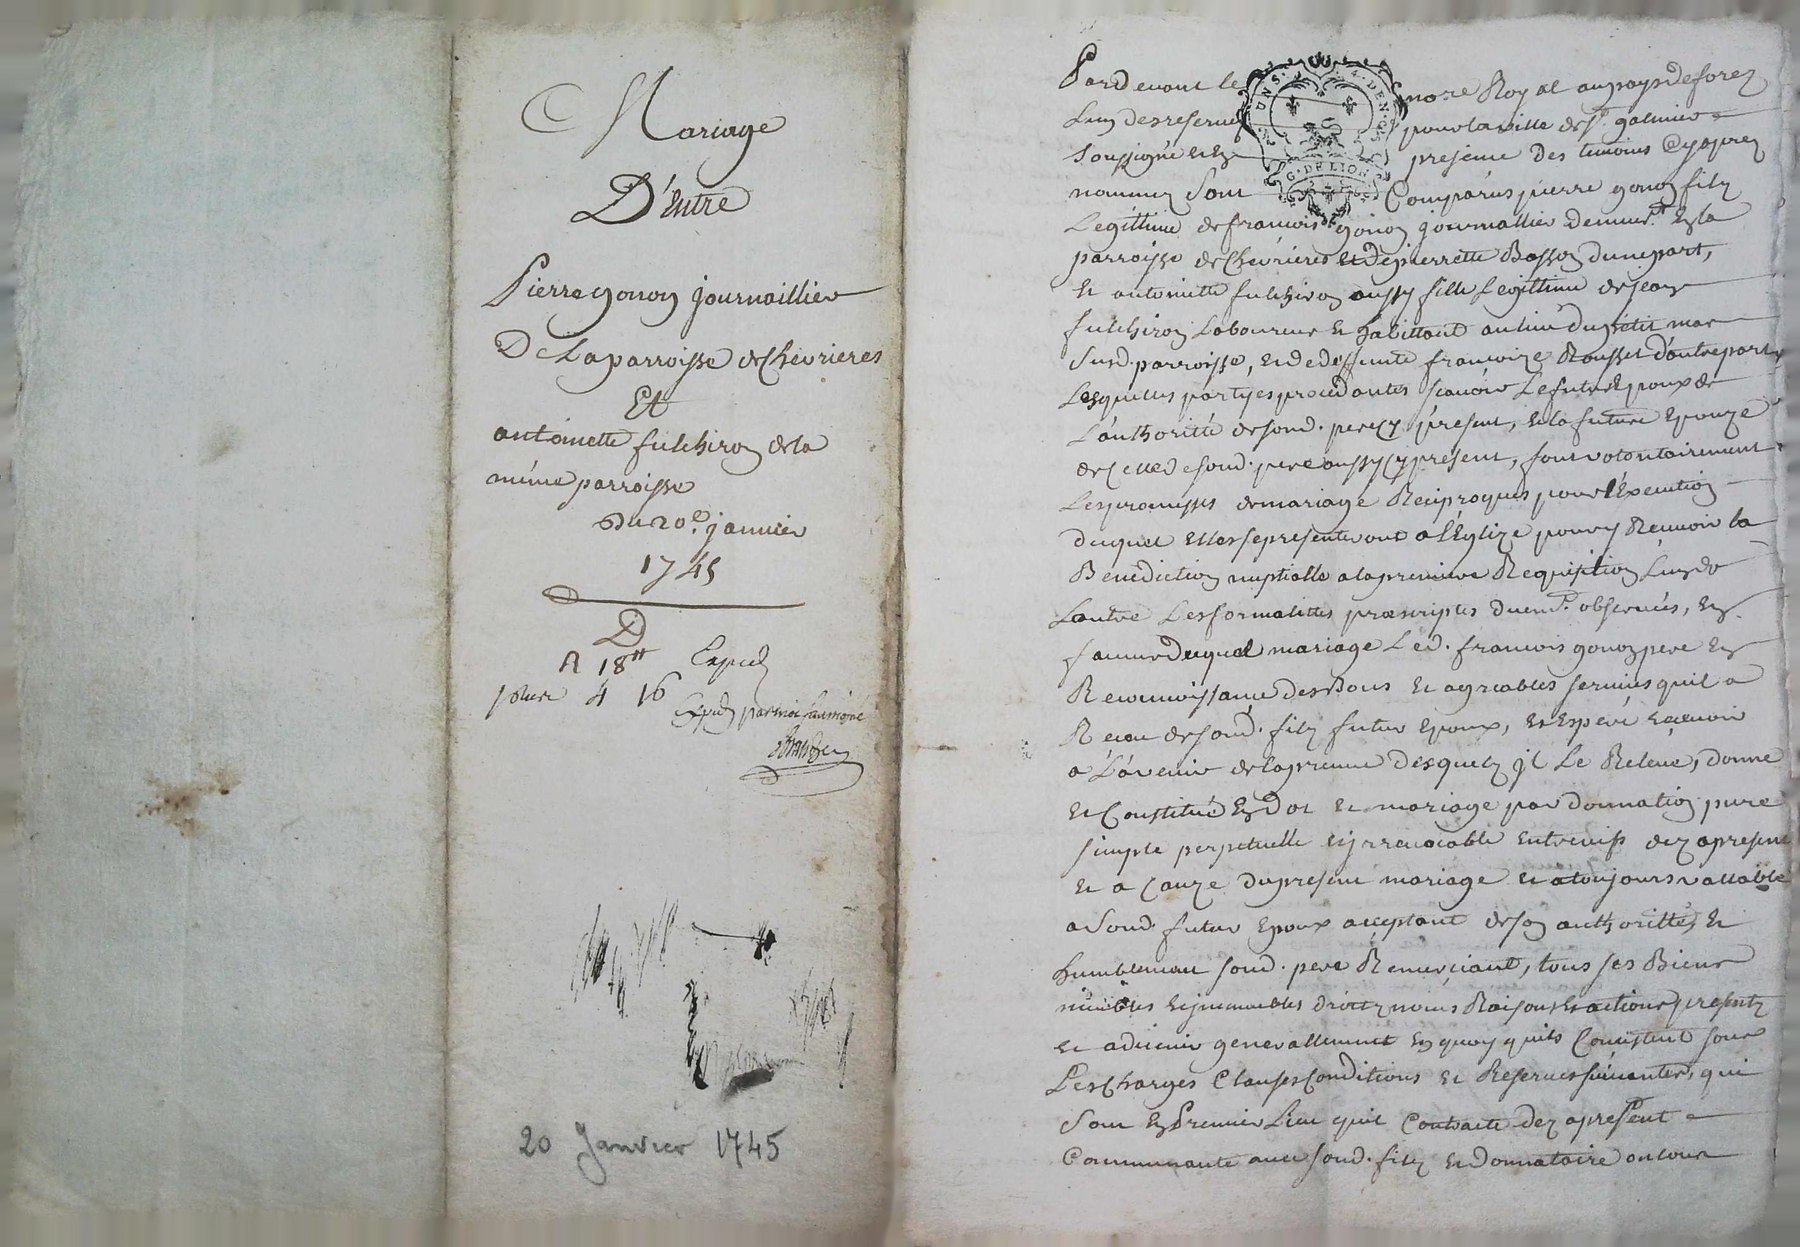 Mariage
D'Entre
Pierre gonon journaillier
De La parroisse de Chevrieres
Et
antoinette fulchiron de la
même parroisse
Du 20e. janvier
1745
D
R 18tt Expied
4 16
Exped par moi soussigné
20 Janvier 1745
Pardevant le nore Royal au pays de forez
L'un des reservés pour la ville de St galmier
Soussigné et En presence des temoins Cy apres
nommez Sont Comparus pierre gonon filz
Legittime de francois gonon journallier demeurt En la
parroisse de Chevrieres et de pierrette Basson d'une part,
Et antoinette fulchiron aussy fille Legittime de jean
fulchiron Laboureur et habittant au lieu du petit mas
Susd. parroisse, et de deffunte francoize Rousset d'autre part
Lesquelles partyes procedantes scavoir Le futur Epoux de
L'authoritté de sond. pere Cy présent, et la future Epouze
de Celle de sond. pere aussy Cy present, font volontairement
Les promesses de mariage Reciproques pour l'Execution
duquel Elles se presenteront a l'Eglize pour y Recevoir la
Benediction nuptialle a la premiere Requisition L'un de
L'autre Les formalittés prescriptes duemt. observées, En
faveur duquel mariage Led. francois gonon pere En
Reconnoissance des Bons et agreables services quil a
Receu de sond. filz futur Epoux, et Espere recevoir
a L'avenir de la preuve desquelz jl Le Releve, donne
et Constitue En Dot et mariage par donnation pure
simple perpetuelle irrevocable Entre vifs dez apresent
et a Cauze du present mariage et a toujours vallable
a Sond. futur Epoux acceptant de son authoritté, et
humblement sond. pere Remerciant, tous ses Biens
meubles et jmmeubles droitz noms Raisons et actions presentz
et advenir generallement En quoy quils Consistent sous
Les Charges Clauses Conditions et Reserves suivantes, qui
Sont En Premier Lieu quil Contracte dez apresent
Communauté avec sond. filz et donnataire